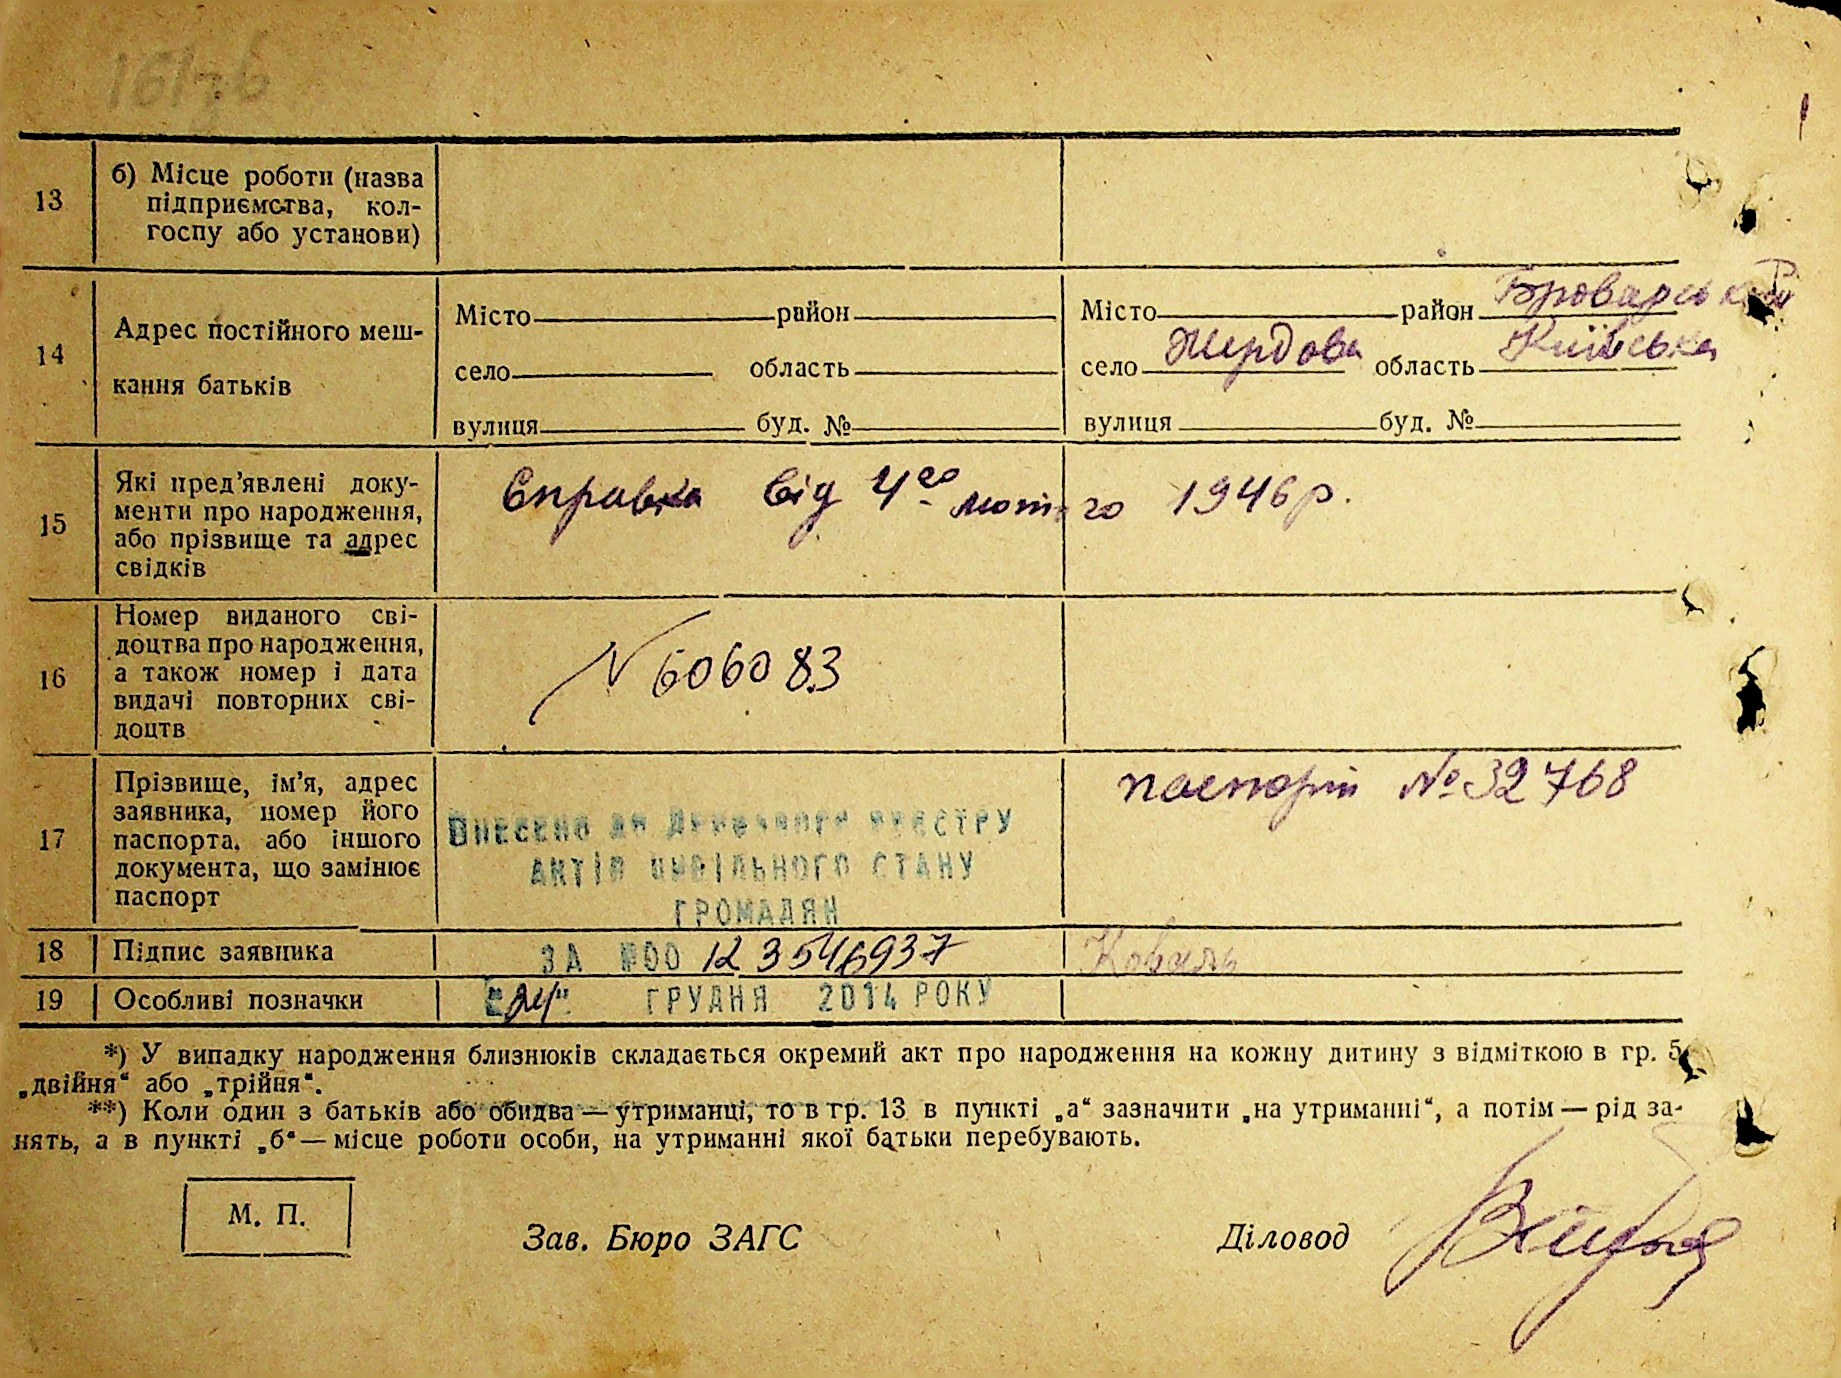 13
б) Місце роботи (назва
підприємства, кол-
госпу або установи)
14
Адрес постійного меш-
кання батьків
Місто район
село область
вулиця буд. №
Місто район Броварський
село Жердова область Київська
вулиця буд. №
15
Які пред’явлені доку-
менти про народження,
або прізвище та адрес
свідків
Справка від 4го лютого 1946 р.
16
Номер виданого сві-
доцтва про народження,
а також номер і дата
видачі повторних сві-
доцтв
N 606083
17
Прізвище, ім’я, адрес
заявника, номер його
паспорта, або іншого
документа, що замінює
паспорт
паспорт № 32768
Внесено до Державного реєстру
актів цивільного стану
громадян
18
Підпис заявника
за №00 123546937
Коваль
19
Особливі позначки
"24" грудня 2014 року
*) У випадку народження близнюків складається окремий акт про народження на кожну дитину з відміткою в гр. 5
„двійня“ або „трійня“.
**) Коли один з батьків або обидва — утриманці, то в гр. 13 в пункті „а“ зазначити „на утриманні“, а потім — рід за-
нять, а в пункті „б“ — місце роботи особи, на утриманні якої батьки перебувають.
М. П.
Зав. Бюро ЗАГС
Діловод